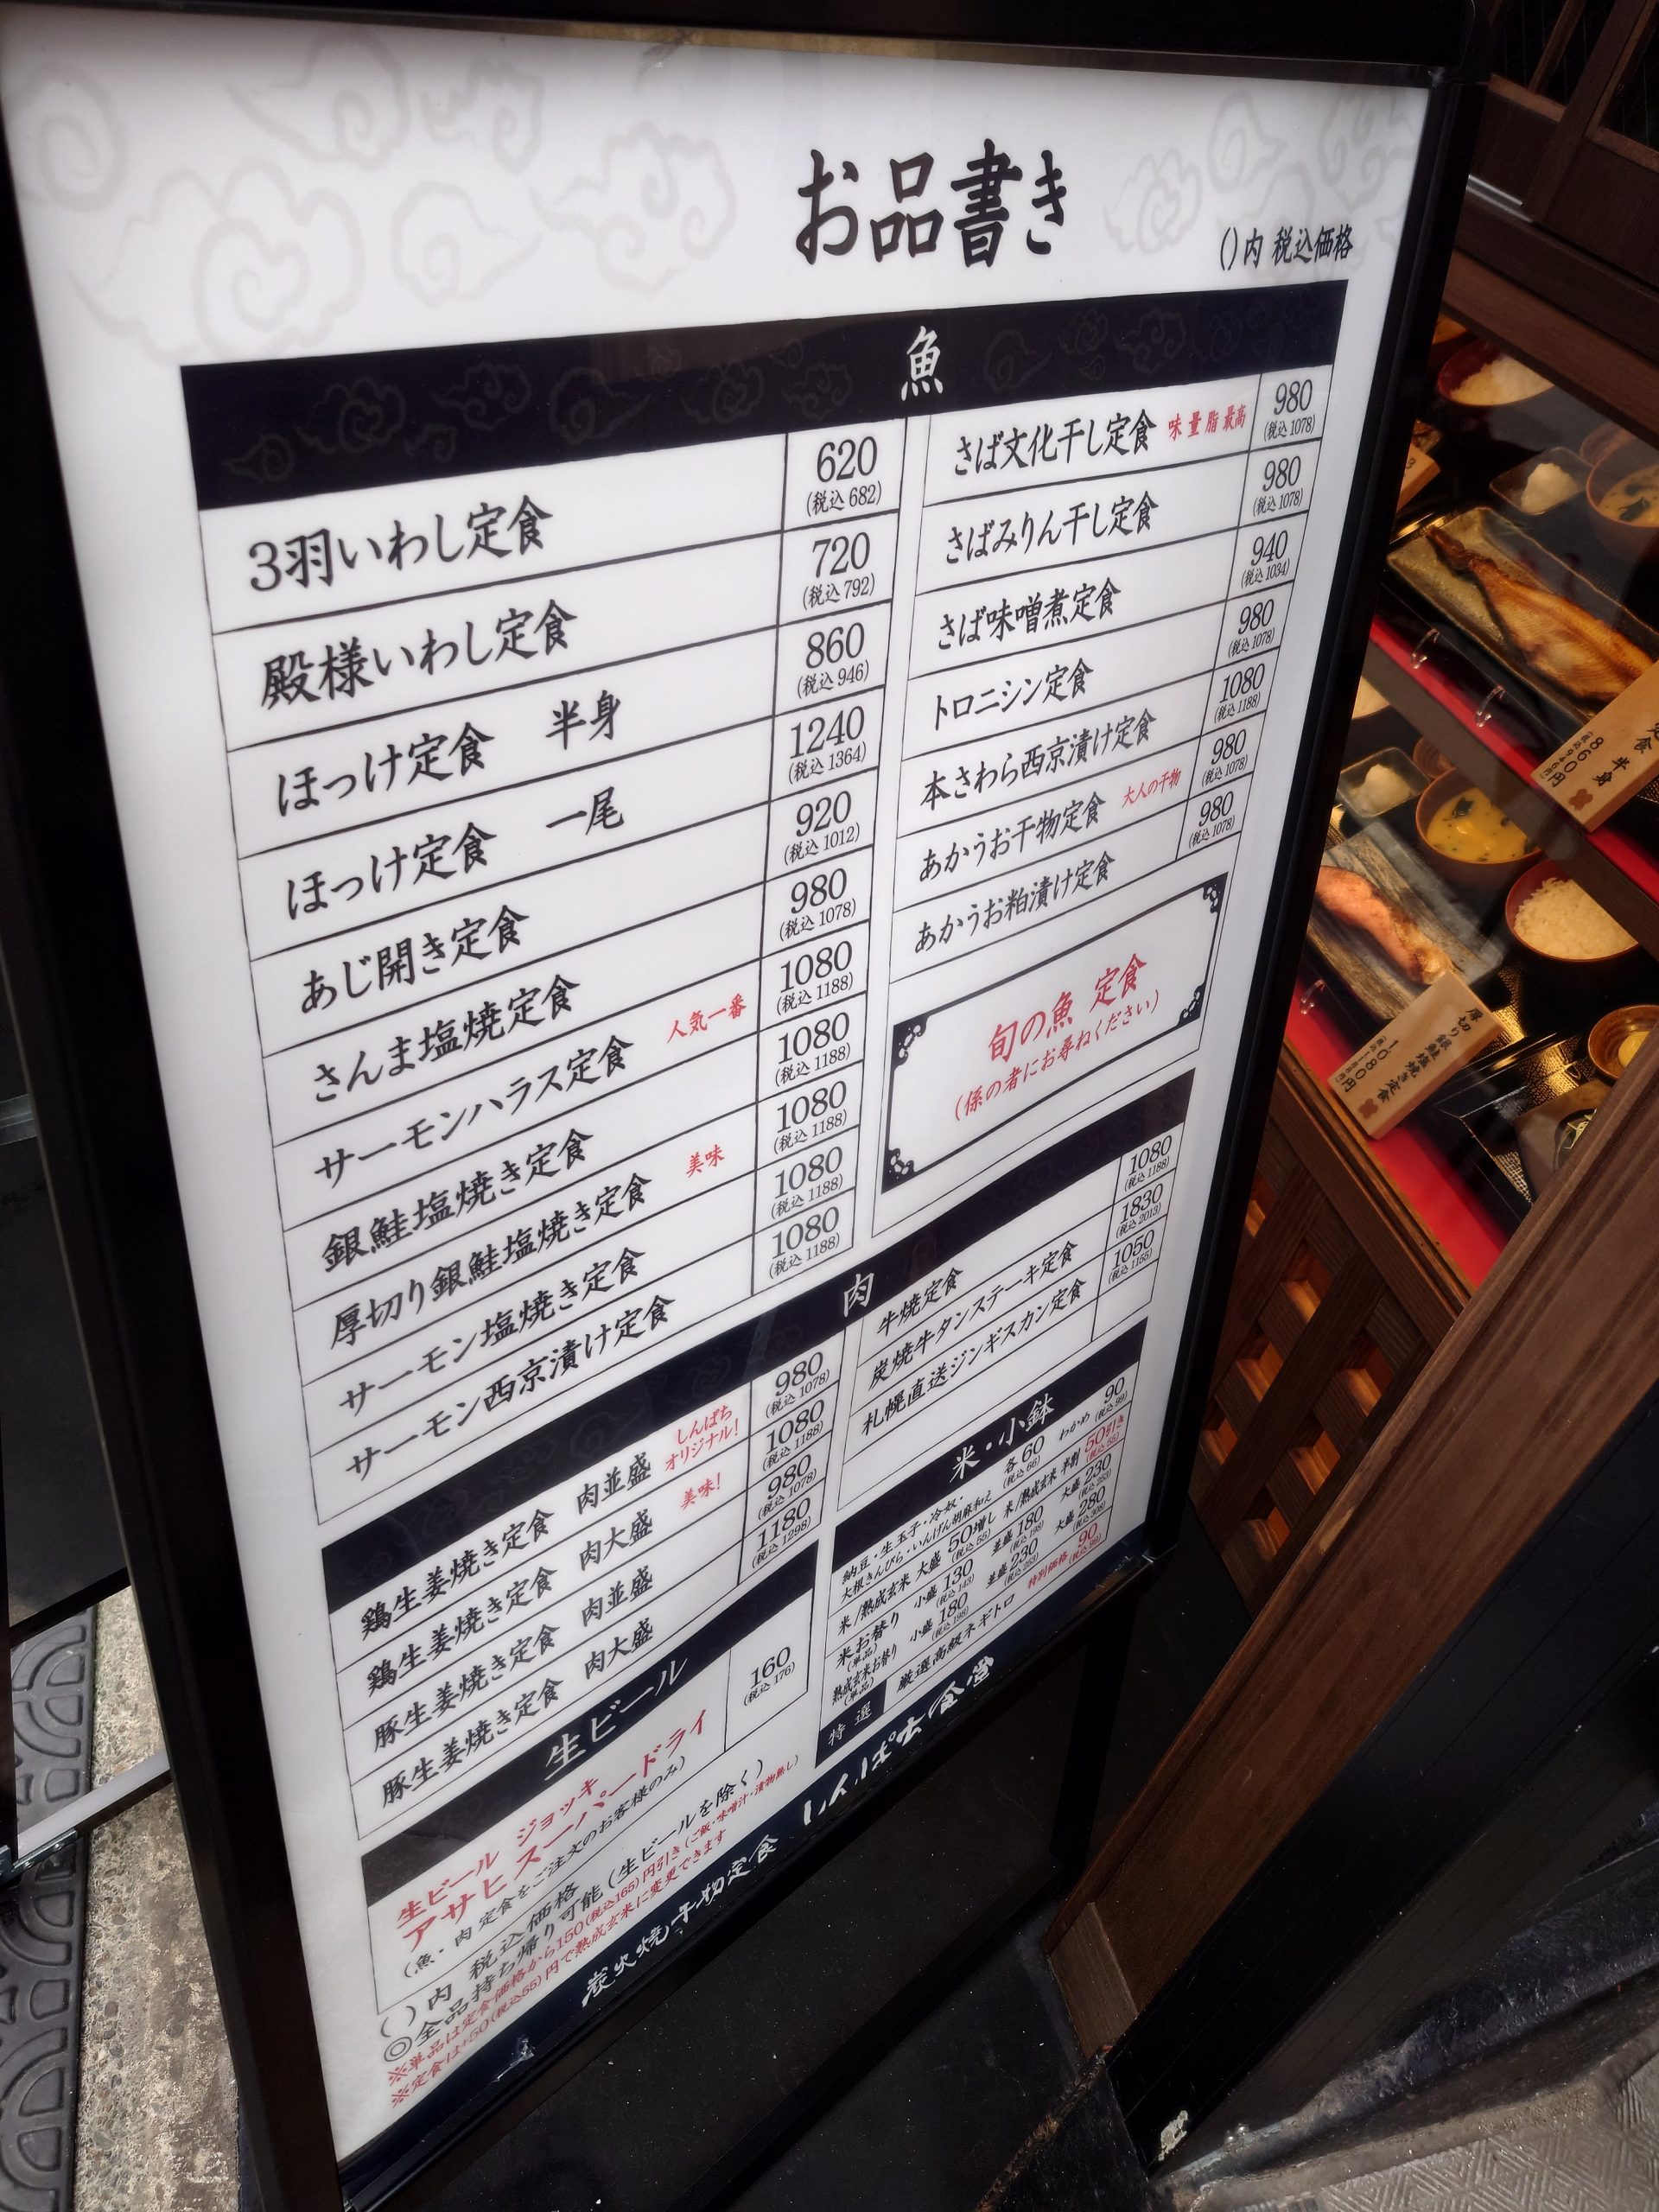 お品書き
()内 税込価格
魚
3羽いわし定食 620 (税込682)
殿様いわし定食 720 (税込792)
ほっけ定食 半身 860 (税込946)
ほっけ定食 一尾 1240 (税込1364)
あじ開き定食 920 (税込1012)
さんま塩焼定食 980 (税込1078)
サーモンハラス定食 人気一番 1080 (税込1188)
銀鮭塩焼き定食 1080 (税込1188)
厚切り銀鮭塩焼き定食 美味 1080 (税込1188)
サーモン塩焼き定食 1080 (税込1188)
サーモン西京漬け定食 1080 (税込1188)
さば文化干し定食 味量脂最高 980 (税込1078)
さばみりん干し定食 980 (税込1078)
さば味噌煮定食 940 (税込1034)
トロニシン定食 980 (税込1078)
本さわら西京漬け定食 1080 (税込1188)
あかうお干物定食 大人の干物 980 (税込1078)
あかうお粕漬け定食 980 (税込1078)
旬の魚 定食
(係の者にお尋ねください)
肉
鶏生姜焼き定食 肉並盛 しんぱちオリジナル! 980 (税込1078)
鶏生姜焼き定食 肉大盛 美味! 1080 (税込1188)
豚生姜焼き定食 肉並盛 980 (税込1078)
豚生姜焼き定食 肉大盛 1180 (税込1298)
牛焼定食 1080 (税込1188)
炭焼牛タンステーキ定食 1830 (税込2013)
札幌直送ジンギスカン定食 1050 (税込1155)
生ビール
生ビール ジョッキ
アサヒスーパードライ 160 (税込176)
(魚・肉 定食をご注文のお客様のみ)
米・小鉢
納豆・生玉子・冷奴・
大根きんぴら・いんげん胡麻和え 各60 (税込66) わかめ 90 (税込99)
米/熟成玄米 大盛 50増し (税込55) 米/熟成玄米 半割 50引き (税込55)
米お替り (単品) 小盛 130 (税込143) 並盛 180 (税込198) 大盛 230 (税込253)
熟成玄米お替り (単品) 小盛 180 (税込198) 並盛 230 (税込253) 大盛 280 (税込308)
特選 厳選高級ネギトロ 特別価格 90 (税込99)
()内 税込価格
◎全品持ち帰り可能(生ビールを除く)
※単品は定食価格から150(税込165)円引き(ご飯・味噌汁・漬物無し)
※定食は+50(税込55)円で熟成玄米に変更できます
炭火焼干物定食 しんぱち食堂
定食 半身
860円
(税込946円)
厚切り銀鮭塩焼き定食
1080円